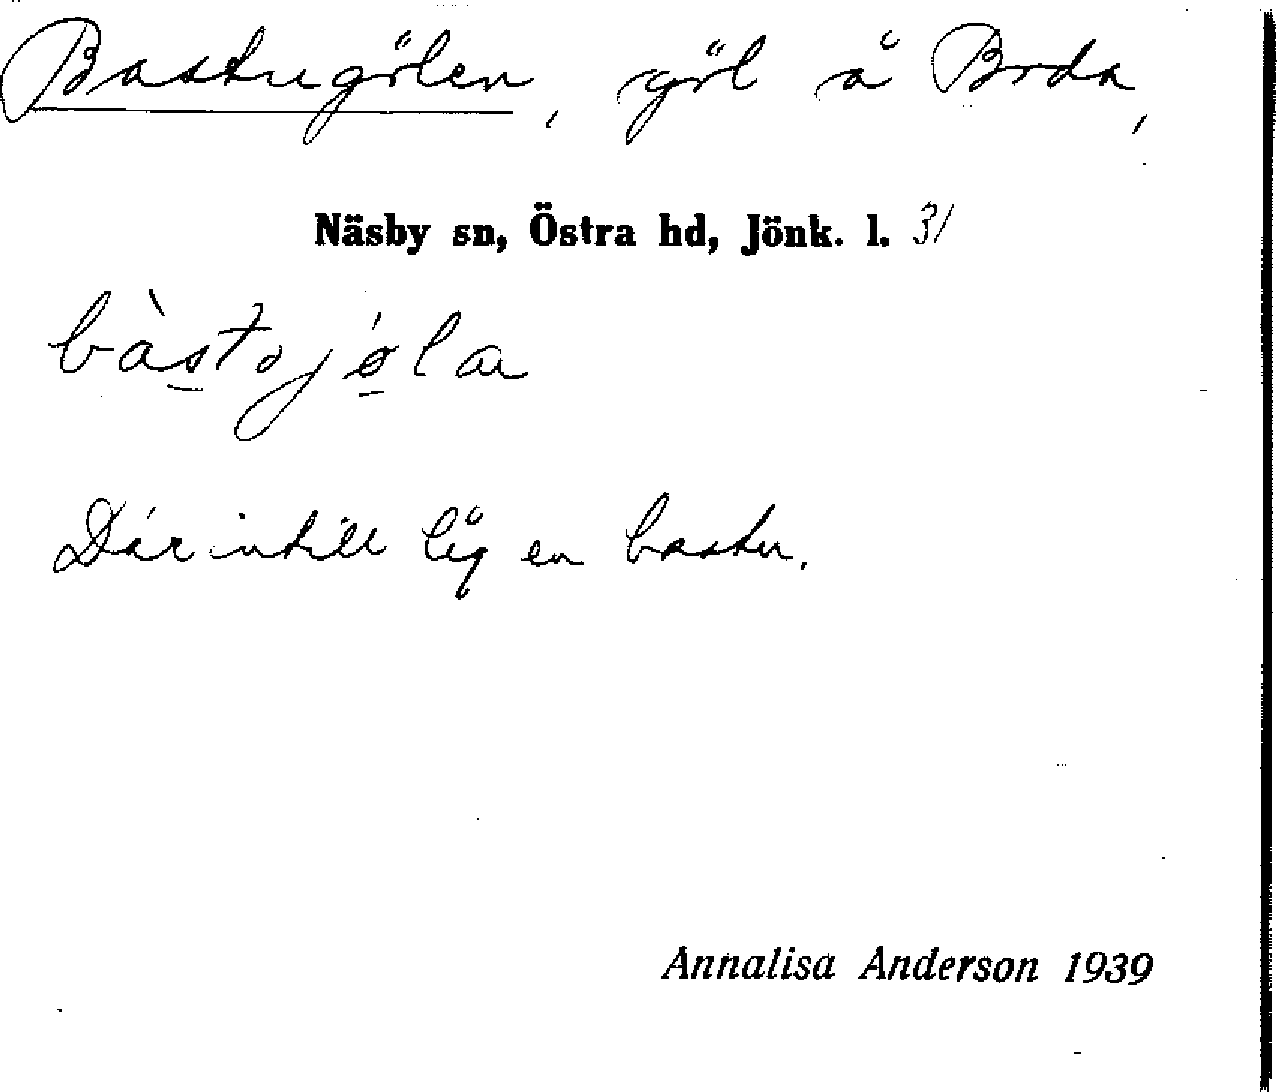 Bastugölen, göl å Boda,
Näsby sn, Östra hd, Jönk. l. 31
bàstojǿla
Där intill låg en bastu.
Annalisa Anderson 1939